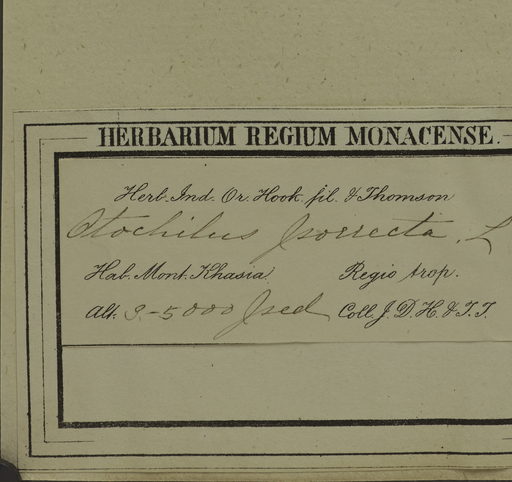 HERBARIUM REGIUM MONACENSE.
Herb. Ind. Or. Hook. fil. & Thomson
Otochilus porrecta, L
Hab. Mont. Khasia. Regio trop.
Alt: 3-5000 ped Coll. J. D. H. & T. T.